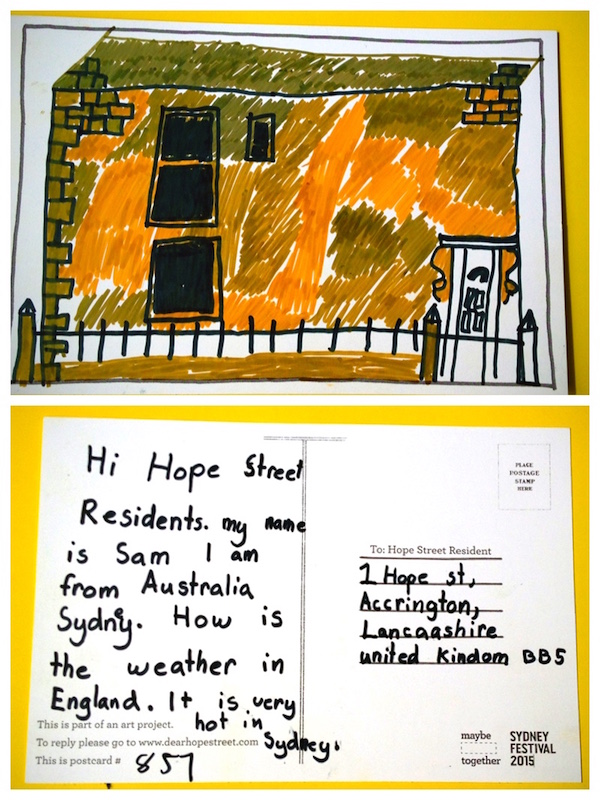 Hi Hope Street
Residents. my name
is Sam I am
from Australia
Sydney. How is
the weather in
England. It is very
hot in
Sydney.
This is part of an art project.
To reply please go to www.dearhopestreet.com
This is postcard # 857
PLACE
POSTAGE
STAMP
HERE
To: Hope Street Resident
1 Hope st,
Accrington,
Lancaashire
united Kindom BB5
maybe
together
SYDNEY
FESTIVAL
2015